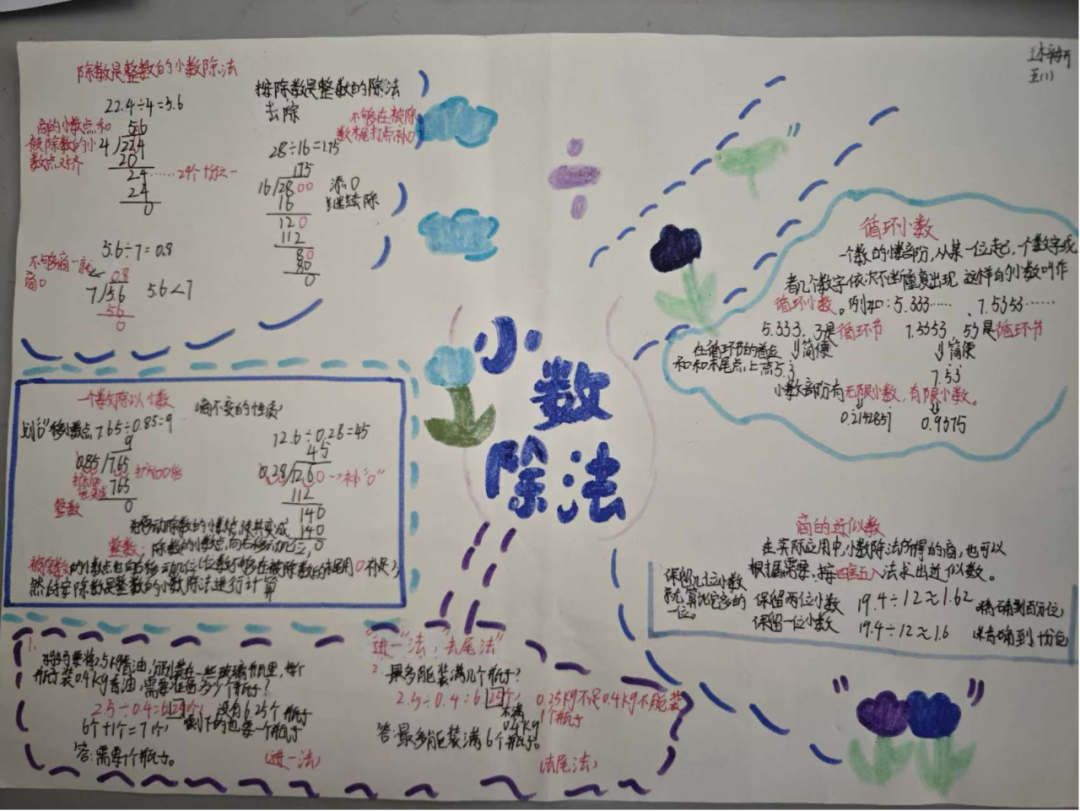 五(1)
除数是整数的小数除法
22.4÷4=5.6
商的小数点和
被除数的小
数点对齐
5.6
4/22.4
20
24……24个十分之一
24
0
5.6÷7=0.8
不够商一就
商0
0.8
7/5.6 5.6<7
56
0
按除数是整数的除法
去除
不够在被除
数末尾打点补0
28÷16=1.75
1.75
16/28.00
16
120
112
80
80
0
添0
继续除
小数
除法
循环小数
一个数的小数部分,从某一位起,一个数字或
者几个数字依次不断重复出现,这样的小数叫作
循环小数。例如:5.333……、7.5353……
5.333,3是循环节 7.5353,53是循环节
在循环节的首位 简便 简便
和和末尾点上点5.3
7.53
小数部分有无限小数,有限小数。
0.2142851 0.9375
一个数除以小数
商不变的性质
移小数点7.65÷0.85=9
9
0.85/7.65
765
0
扩大100倍
整数
12.6÷0.28=45
45
0.28/12.60→补"0"
112
140
140
0
先移动除数的小数点,使其变成
整数;除数的小数点向右移动几位,
被除数的小数点也向右移动几位(位数不够在被除数的末尾用0补足)
然后按除数是整数的小数除法进行计算
商的近似数
在实际应用中,小数除法所得的商,也可以
根据需要,按四舍五入法求出近似数。
保留几位小数
保留两位小数 19.4÷12≈1.62 精确到百分位
一位。
保留一位小数 19.4÷12≈1.6 精确到十分位
"进一"法,"去尾法"
1.
妈妈要将2.5kg香油,分别装在一些玻璃瓶里,每个
瓶子装0.4kg香油,需要准备多少个瓶子?
2.5÷0.4=6.25个, 没有6.25个瓶子
6个+1个=7个, 剩下的也要一个瓶子
答:需要7个瓶子。
(进一法)
2. 最多能装满几个瓶子?
2.5÷0.4=6.25个, 0.25kg不足0.4kg不能装
不满
0.4kg
1个瓶子
答:最多能装满6个瓶子。
(去尾法)